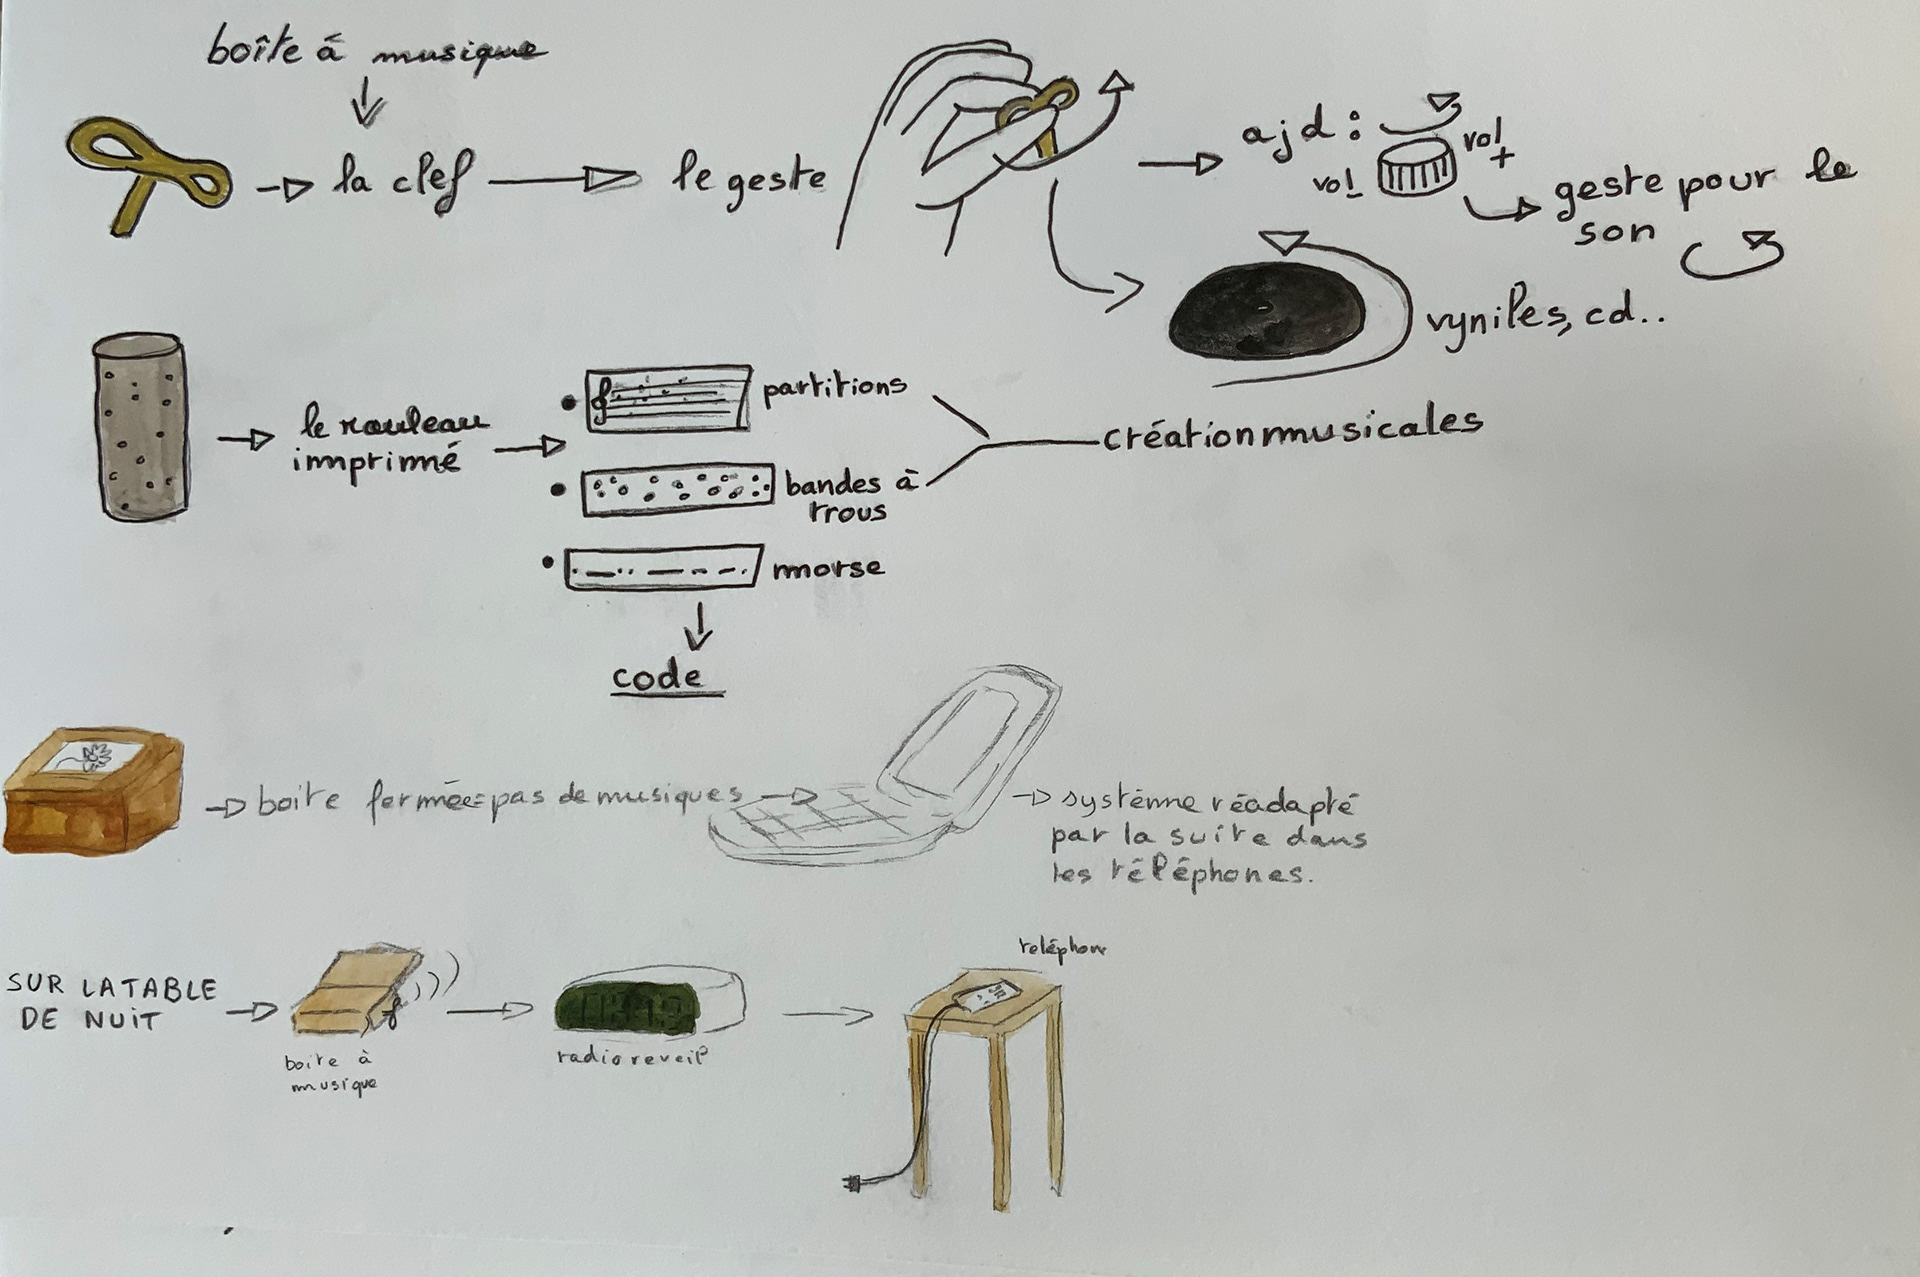 boîte à musique
la clef
le geste
ajd :
vol -
vol +
geste pour le
son
vyniles, cd..
le rouleau
imprimé
partitions
bandes à
trous
morse
création musicales
code
boite fermée = pas de musiques
système réadapté
par la suite dans
les téléphones.
SUR LA TABLE
DE NUIT
boite à
musique
radio reveil
teléphone